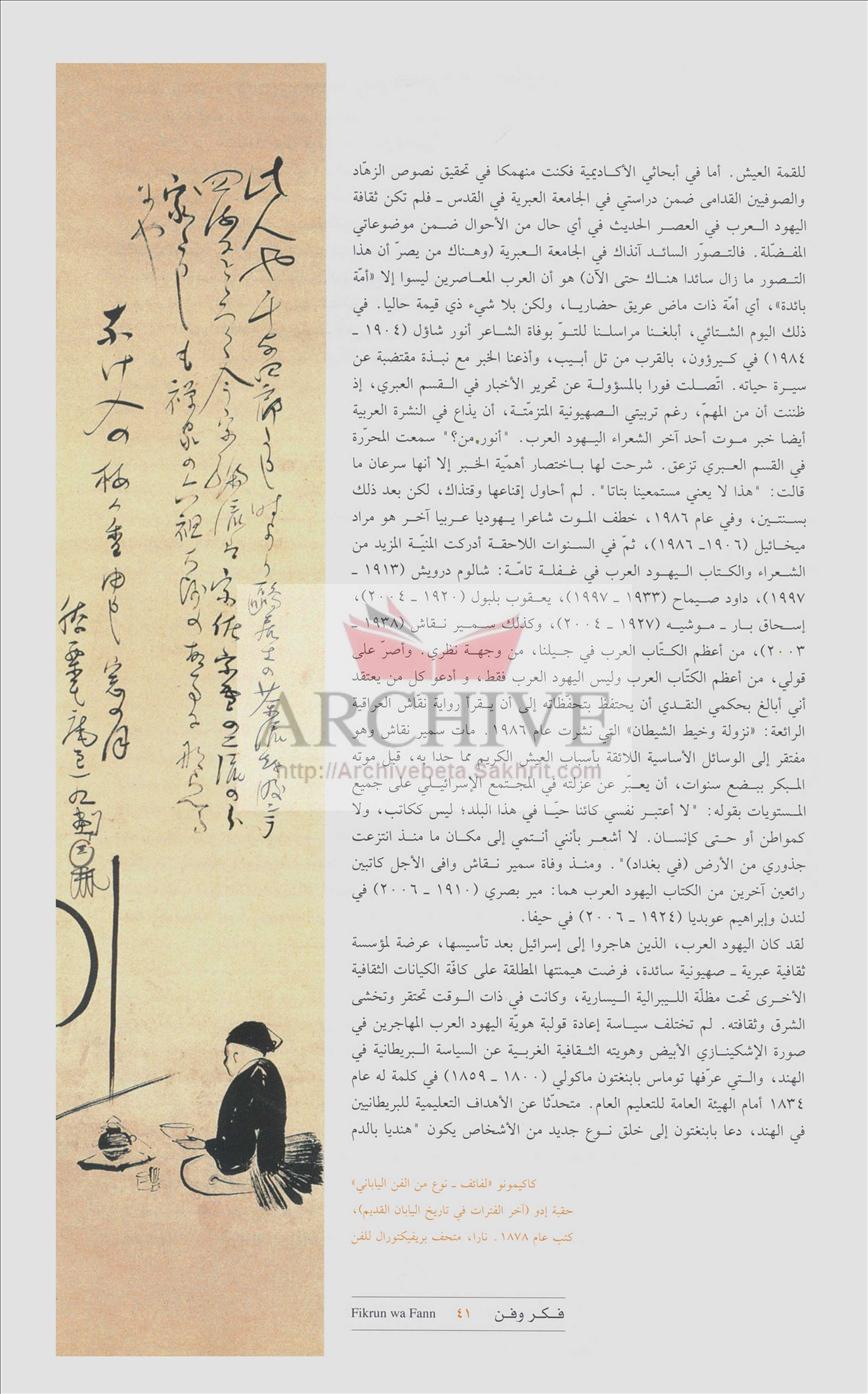 للقمة العيش. أما في أبحاثي الأكاديمية فكنت منهمكا في تحقيق نصوص الزهّاد
والصوفيين القدامى ضمن دراستي في الجامعة العبرية في القدس ـ فلم تكن ثقافة
اليهود العرب في العصر الحديث في أي حال من الأحوال ضمن موضوعاتي
المفضّلة. فالتصوّر السائد آنذاك في الجامعة العبرية (وهناك من يصرّ أن هذا
التصور ما زال سائدا هناك حتى الآن) هو أن العرب المعاصرين ليسوا إلا «أمّة
بائدة»، أي أمّة ذات ماض عريق حضاريا، ولكن بلا شيء ذي قيمة حاليا. في
ذلك اليوم الشتائي، أبلغنا مراسلنا للتوّ بوفاة الشاعر أنور شاؤل (١٩٠٤ ـ
١٩٨٤) في كيرؤون، بالقرب من تل أبيب، وأذعنا الخبر مع نبذة مقتضبة عن
سيرة حياته. اتّصلت فورا بالمسؤولة عن تحرير الأخبار في القسم العبري، إذ
ظننت أن من المهمّ، رغم تربيتي الصهيونية المتزمّتة، أن يذاع في النشرة العربية
أيضا خبر موت أحد آخر الشعراء اليهود العرب. "أنور من؟" سمعت المحرّرة
في القسم العبري تزعق. شرحت لها باختصار أهميّة الخبر إلا أنها سرعان ما
قالت: "هذا لا يعني مستمعينا بتاتا". لم أحاول إقناعها وقتذاك، لكن بعد ذلك
بسنتين، وفي عام ١٩٨٦، خطف الموت شاعرا يهوديا عربيا آخر هو مراد
ميخائيل (١٩٠٦ـ ١٩٨٦)، ثمّ في السنوات اللاحقة أدركت المنيّة المزيد من
الشعراء والكتاب اليهود العرب في غفلة تامّة: شالوم درويش (١٩١٣ ـ
١٩٩٧)، داود صيماح (١٩٣٣ ـ ١٩٩٧)، يعقوب بلبول (١٩٢٠ ـ ٢٠٠٤)،
إسحاق بار ـ موشيه (١٩٢٧ ـ ٢٠٠٤)، وكذلك سمير نقاش (١٩٣٨ ـ
٢٠٠٣)، من أعظم الكتّاب العرب في جيلنا، من وجهة نظري. وأصرّ على
قولي، من أعظم الكتّاب العرب وليس اليهود العرب فقط، و أدعو كل من يعتقد
أني أبالغ بحكمي النقدي أن يحتفظ بتحفظاته إلى أن يقرأ رواية نقّاش العراقية
الرائعة: «نزولة وخيط الشيطان» التي نشرت عام ١٩٨٦. مات سمير نقاش وهو
مفتقر إلى الوسائل الأساسية اللائقة بأسباب العيش الكريم مما حدا به، قبل موته
المبكر ببضع سنوات، أن يعبّر عن عزلته في المجتمع الإسرائيلي على جميع
المستويات بقوله: "لا أعتبر نفسي كائنا حيّا في هذا البلد؛ ليس ككاتب، ولا
كمواطن أو حتى كإنسان. لا أشعر بأنني أنتمي إلى مكان ما منذ انتزعت
جذوري من الأرض (في بغداد)". ومنذ وفاة سمير نقاش وافى الأجل كاتبين
رائعين آخرين من الكتاب اليهود العرب هما: مير بصري (١٩١٠ ـ ٢٠٠٦) في
لندن وإبراهيم عوبديا (١٩٢٤ ـ ٢٠٠٦) في حيفا.
لقد كان اليهود العرب، الذين هاجروا إلى إسرائيل بعد تأسيسها، عرضة لمؤسسة
ثقافية عبرية ـ صهيونية سائدة، فرضت هيمنتها المطلقة على كافّة الكيانات الثقافية
الأخرى تحت مظلّة الليبرالية اليسارية، وكانت في ذات الوقت تحتقر وتخشى
الشرق وثقافته. لم تختلف سياسة إعادة قولبة هويّة اليهود العرب المهاجرين في
صورة الإشكينازي الأبيض وهويته الثقافية الغربية عن السياسة البريطانية في
الهند، والتي عرّفها توماس بابنغتون ماكولي (١٨٠٠ ـ ١٨٥٩) في كلمة له عام
١٨٣٤ أمام الهيئة العامة للتعليم العام. متحدّثا عن الأهداف التعليمية للبريطانيين
في الهند، دعا بابنغتون إلى خلق نوع جديد من الأشخاص يكون "هنديا بالدم
كاكيمونو «لفائف ـ نوع من الفن الياباني»
حقبة إدو (آخر الفترات في تاريخ اليابان القديم)،
كتب عام ١٨٧٨. نارا، متحف بريفيكتورال للفن
فكر وفن ٤١ Fikrun wa Fann
ARCHIVE
http://Archivebeta.Sakhrit.com